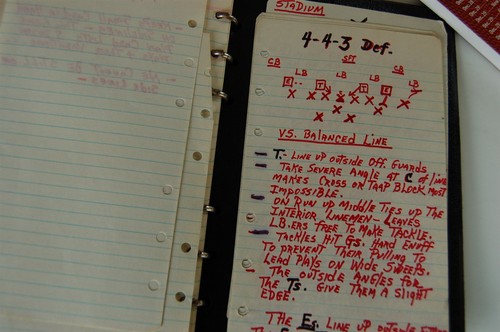 STADIUM
4-4-3 Def.
SFT
CB LB LB LB LB CB
E T T E
X X X X X X X X
X X
X
VS. BALANCED LINE
T.- LINE UP OUTSIDE OFF. GUARDS
- TAKE SEVERE ANGLE AT C OF LINE
MAKES CROSS OR TRAP BLOCK MOST
IMPOSSIBLE.
- ON RUN UP MIDDLE TIES UP THE
INTERIOR LINEMEN- LEAVES
LB.ERS FREE TO MAKE TACKLE.
- TACKLES HIT Gs. HARD ENUFF
TO PREVENT THEIR PULLING TO
LEAD PLAYS ON WIDE SWEEPS.
- THE OUTSIDE ANGLES FOR
THE Ts. GIVE THEM A SLIGHT
EDGE.
THE Es. LINE UP OUTSIDE